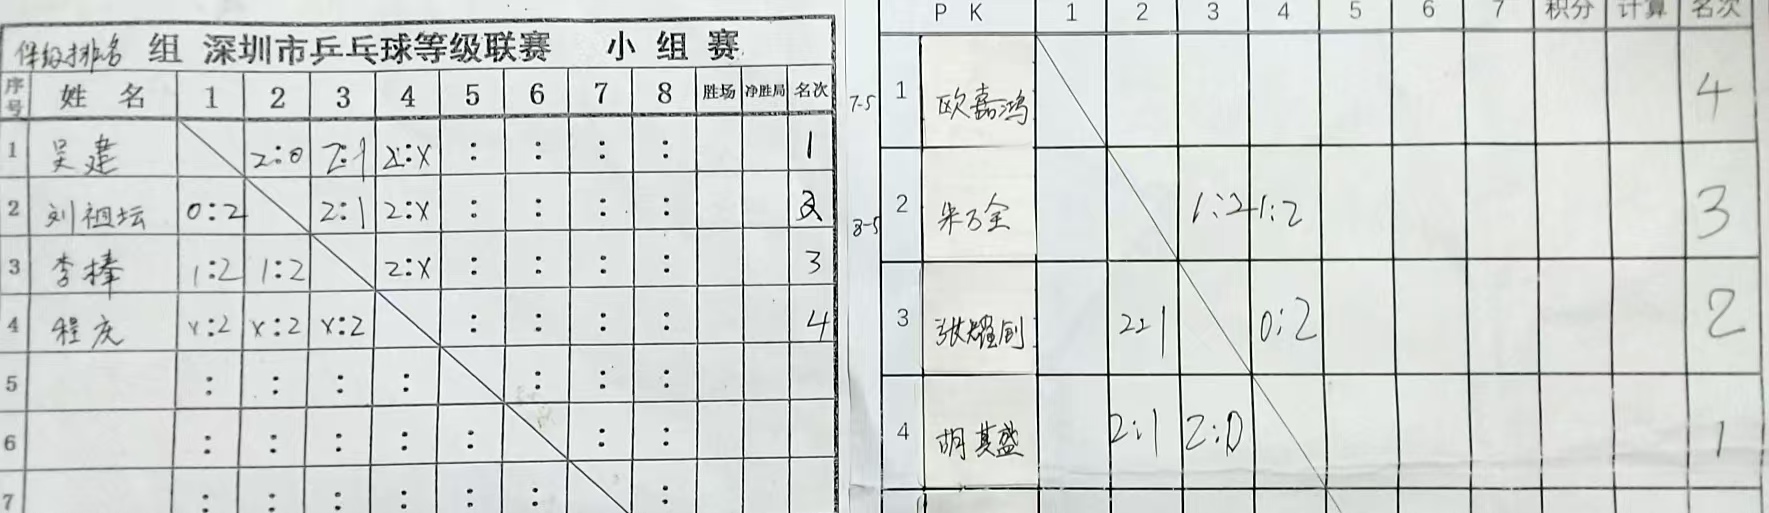 组 深圳市乒乓球等级联赛 小组赛
序号 姓名 1 2 3 4 5 6 7 8 胜场 净胜局 名次
1 吴建 2:0 2:1 2:X : : : : 1
2 刘祖坛 0:2 2:1 2:X : : : : 2
3 李棒 1:2 1:2 2:X : : : : 3
4 程庆 X:2 X:2 X:2 : : : : 4
5 : : : : : : :
6 : : : : : : :
7 : : : : : : :
PK 1 2 3 4 5 6 7 积分 计算 名次
7-5 1 欧嘉鸿 4
3-5 2 朱万全 1:2 1:2 3
3 张耀刚 2:1 0:2 2
4 胡其盛 2:1 2:0 1